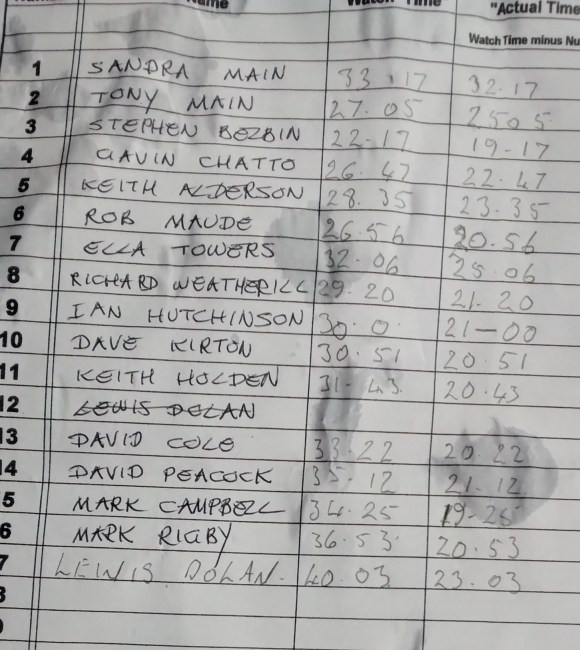 Name Watch Time "Actual Time
Watch Time minus Nu
1 SANDRA MAIN 33.17 32.17
2 TONY MAIN 27.05 25.05
3 STEPHEN BEZBIN 22-17 19-17
4 GAVIN CHATTO 26.47 22.47
5 KEITH ALDERSON 28.35 23.35
6 ROB MAUDE 26.56 20.56
7 ELLA TOWERS 32.06 25.06
8 RICHARD WEATHERILL 29.20 21.20
9 IAN HUTCHINSON 30.0. 21-00
10 DAVE KIRTON 30.51 20.51
11 KEITH HOLDEN 31-43 20.43
12 LEWIS DOLAN
13 DAVID COLE 33.22 20.22
14 DAVID PEACOCK 35.12 21.12
5 MARK CAMPBELL 34.25 19-25
6 MARK RIGBY 36.53 20.53
7 LEWIS DOLAN. 40.03 23.03